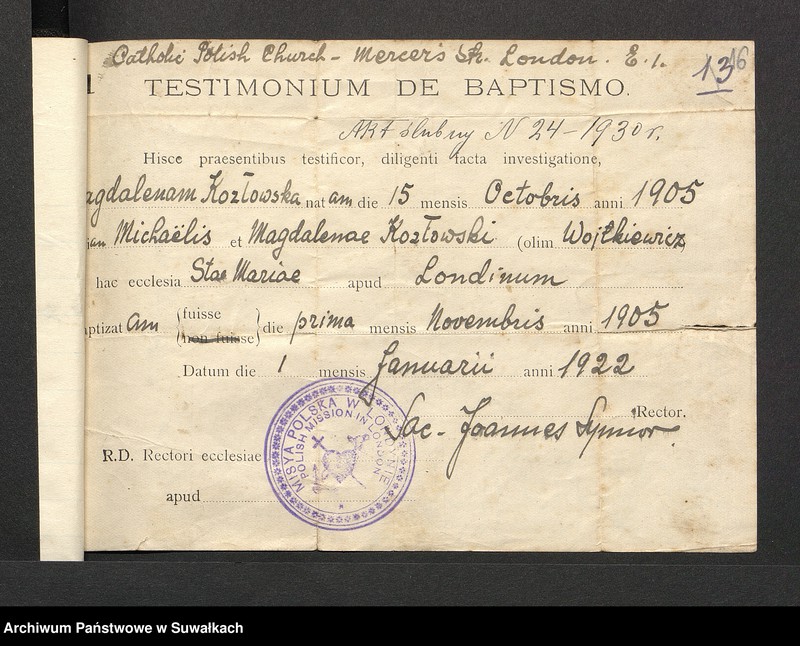 Catholic Polish Church - Mercer's Str. London. E.1.
1316
TESTIMONIUM DE BAPTISMO.
Akt ślubny N 24-1930 r.
Hisce praesentibus testificor, diligenti facta investigatione,
agdalenam Kozłowska nat am die 15 mensis Octobris anni 1905
Michaëlis et Magdalenae Kozłowski (olim Wojtkiewicz
hac ecclesia Stae Mariae apud Londinum
ptizat am (fuisse / non fuisse) die prima mensis Novembris anni 1905
Datum die 1 mensis Januarii anni 1922
Sac. Joannes Symior Rector.
MISYA POLSKA W LONDYNIE
POLISH MISSION IN LONDON
R.D. Rectori ecclesiae
apud
Archiwum Państwowe w Suwałkach